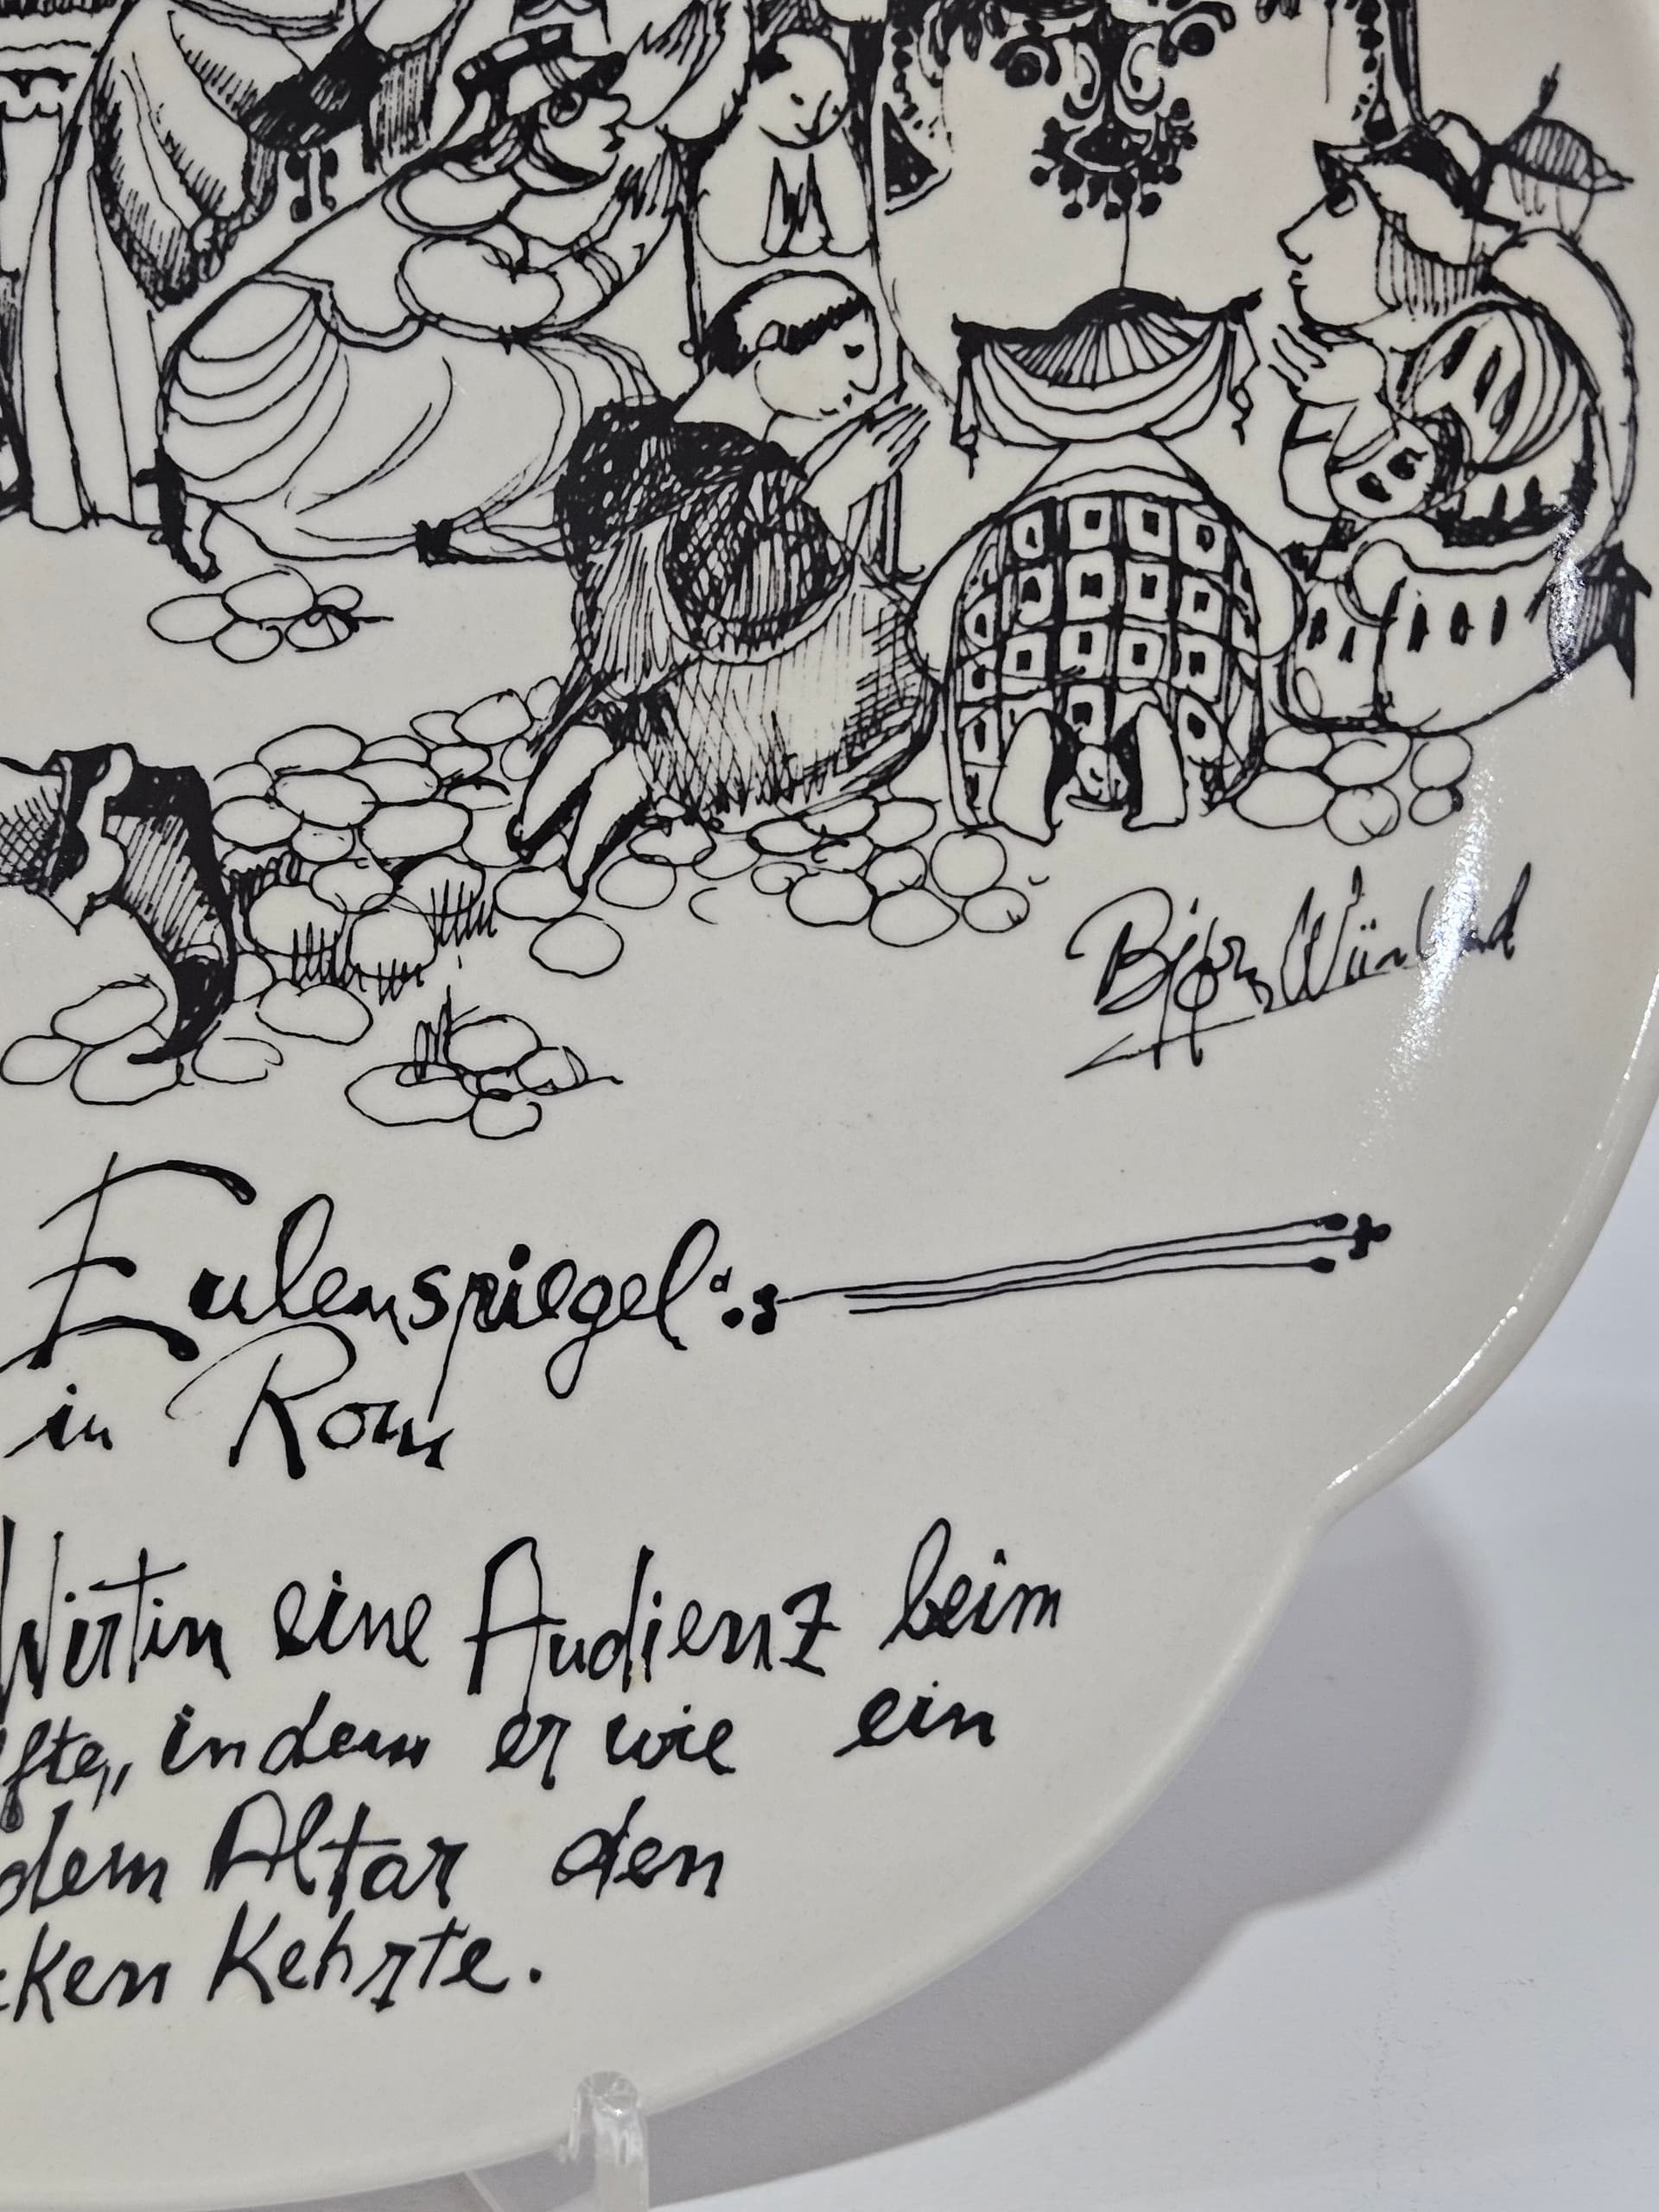 Bjørn Wiinblad
Eulenspiegel:
in Rom
Wirtin eine Audienz beim
fte, indem er wie ein
dem Altar den
cken Kehrte.